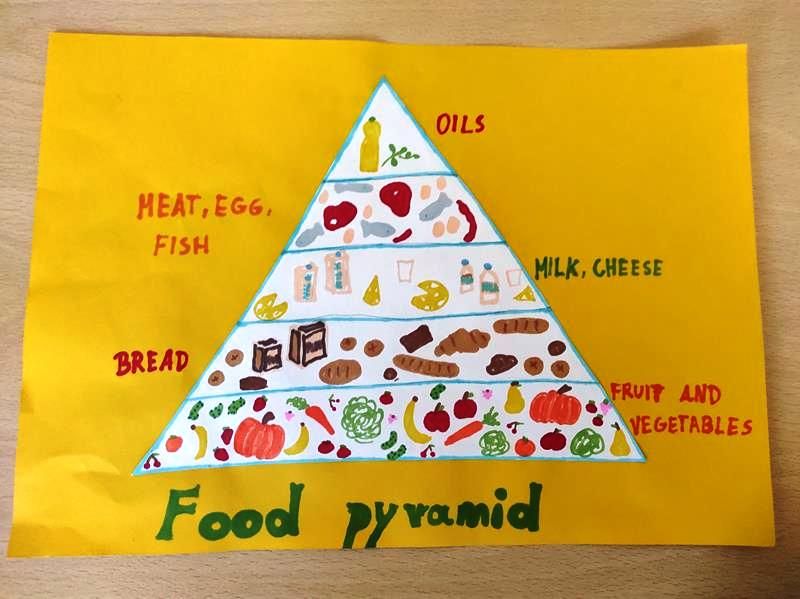 OILS
MEAT, EGG,
FISH
MILK, CHEESE
BREAD
FRUIT AND
VEGETABLES
Food pyramid